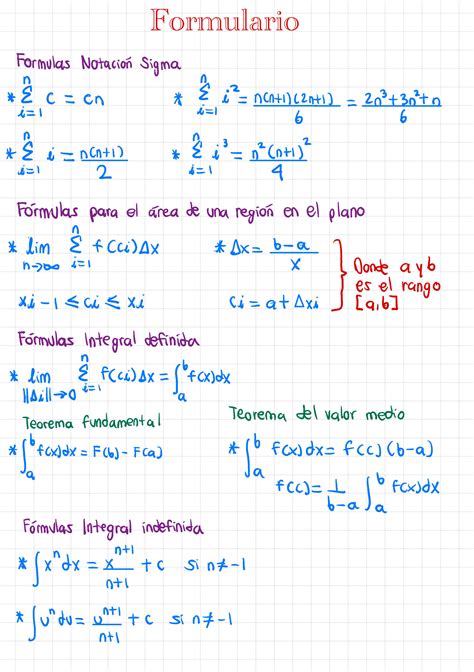 Formulario
Formulas Notación Sigma
* n Σ i=1 c = cn    * n Σ i=1 i² = n(n+1)(2n+1)/6 = 2n³+3n²+n/6
* n Σ i=1 i = n(n+1)/2    * n Σ i=1 i³ = n²(n+1)²/4
Fórmulas para el área de una región en el plano
* lim n→∞ n Σ i=1 f(ci)Δx    * Δx = b-a/x
xi-1 ≤ ci ≤ xi    ci = a + Δxi
Donde a y b
es el rango
[a,b]
Fórmulas Integral definida
* lim ||Δi||→0 n Σ i=1 f(ci)Δx = ∫ₐᵇ f(x)dx
Teorema fundamental
* ∫ₐᵇ f(x)dx = F(b) - F(a)
Teorema del valor medio
* ∫ₐᵇ f(x)dx = f(c)(b-a)
f(c) = 1/b-a ∫ₐᵇ f(x)dx
Fórmulas Integral indefinida
* ∫xⁿdx = xⁿ⁺¹/n+1 + c si n≠-1
* ∫uⁿdu = uⁿ⁺¹/n+1 + c si n≠-1